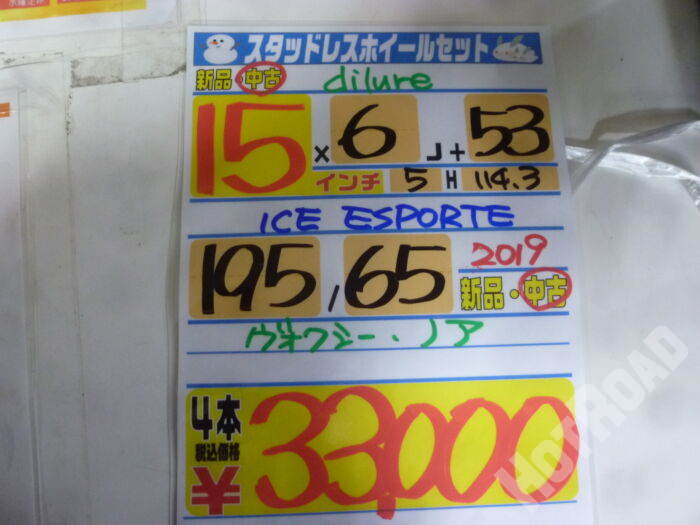 水曜定休
スタッドレスホイールセット
新品・中古 dilure
15 × 6 J + 53
インチ 5 H 114.3
ICE ESPORTE
195 / 65 2019
新品・中古
ヴォクシー・ノア
4本
税込価格
¥33,000
HOT ROAD